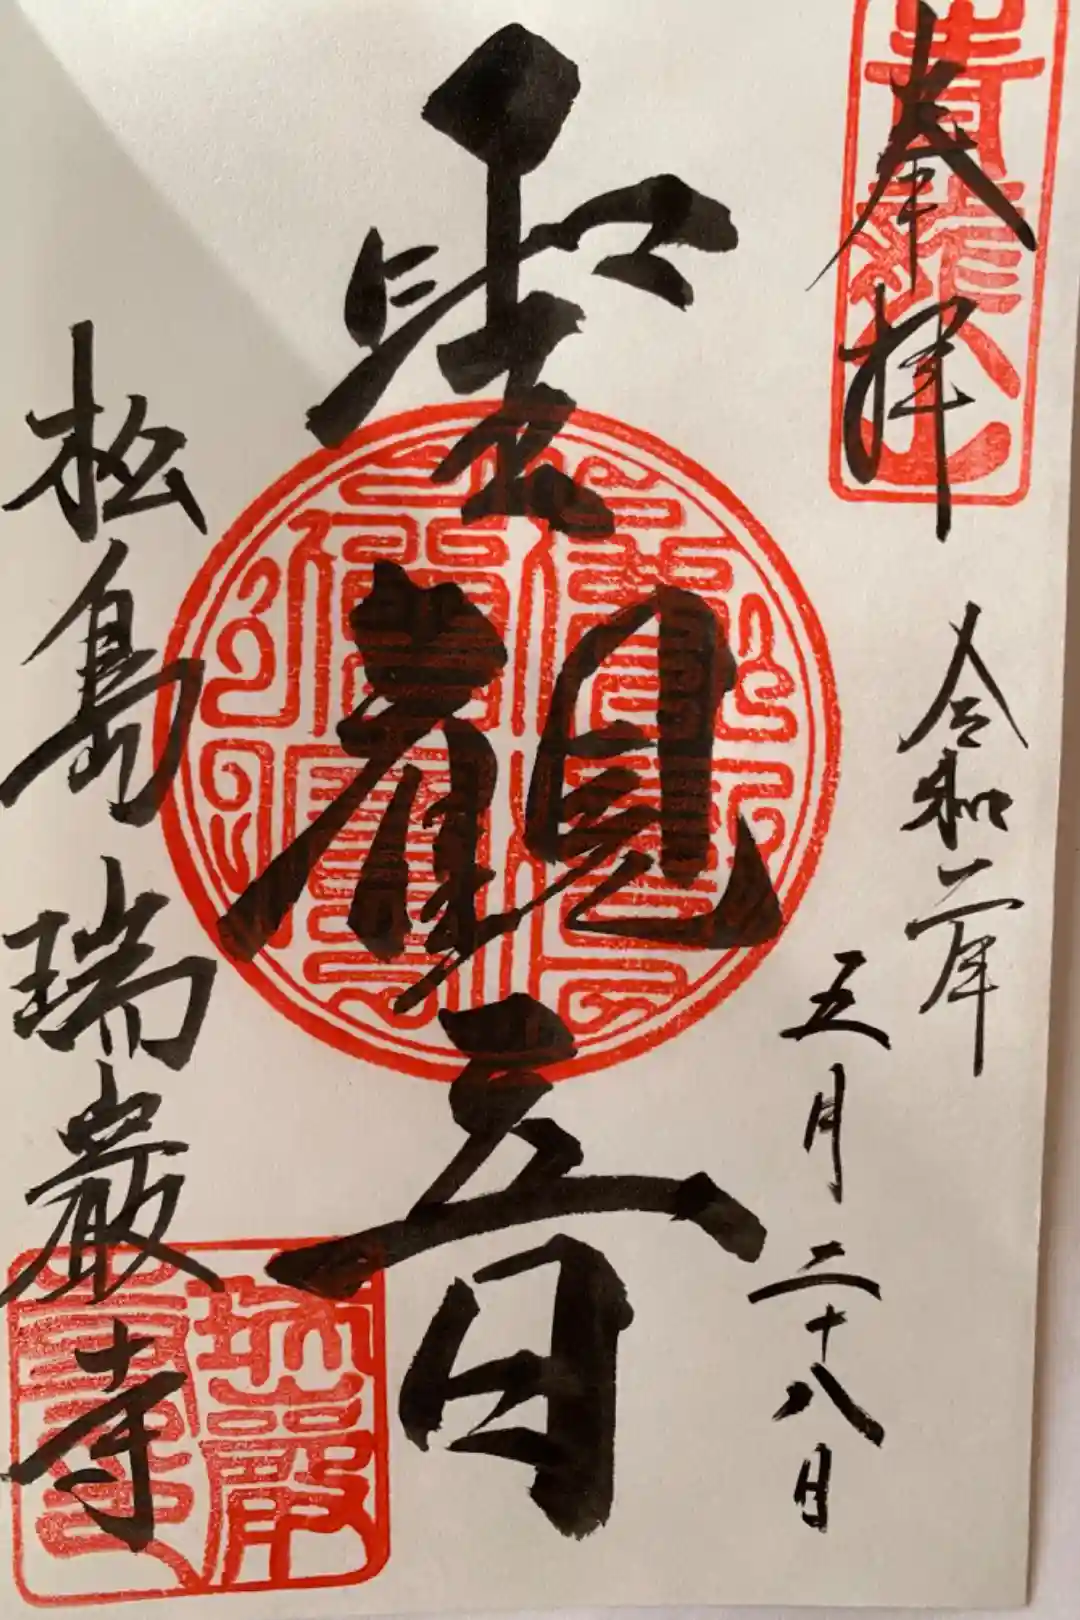 奉拝
令和二年
五月二十八日
聖観音
松島瑞巌寺